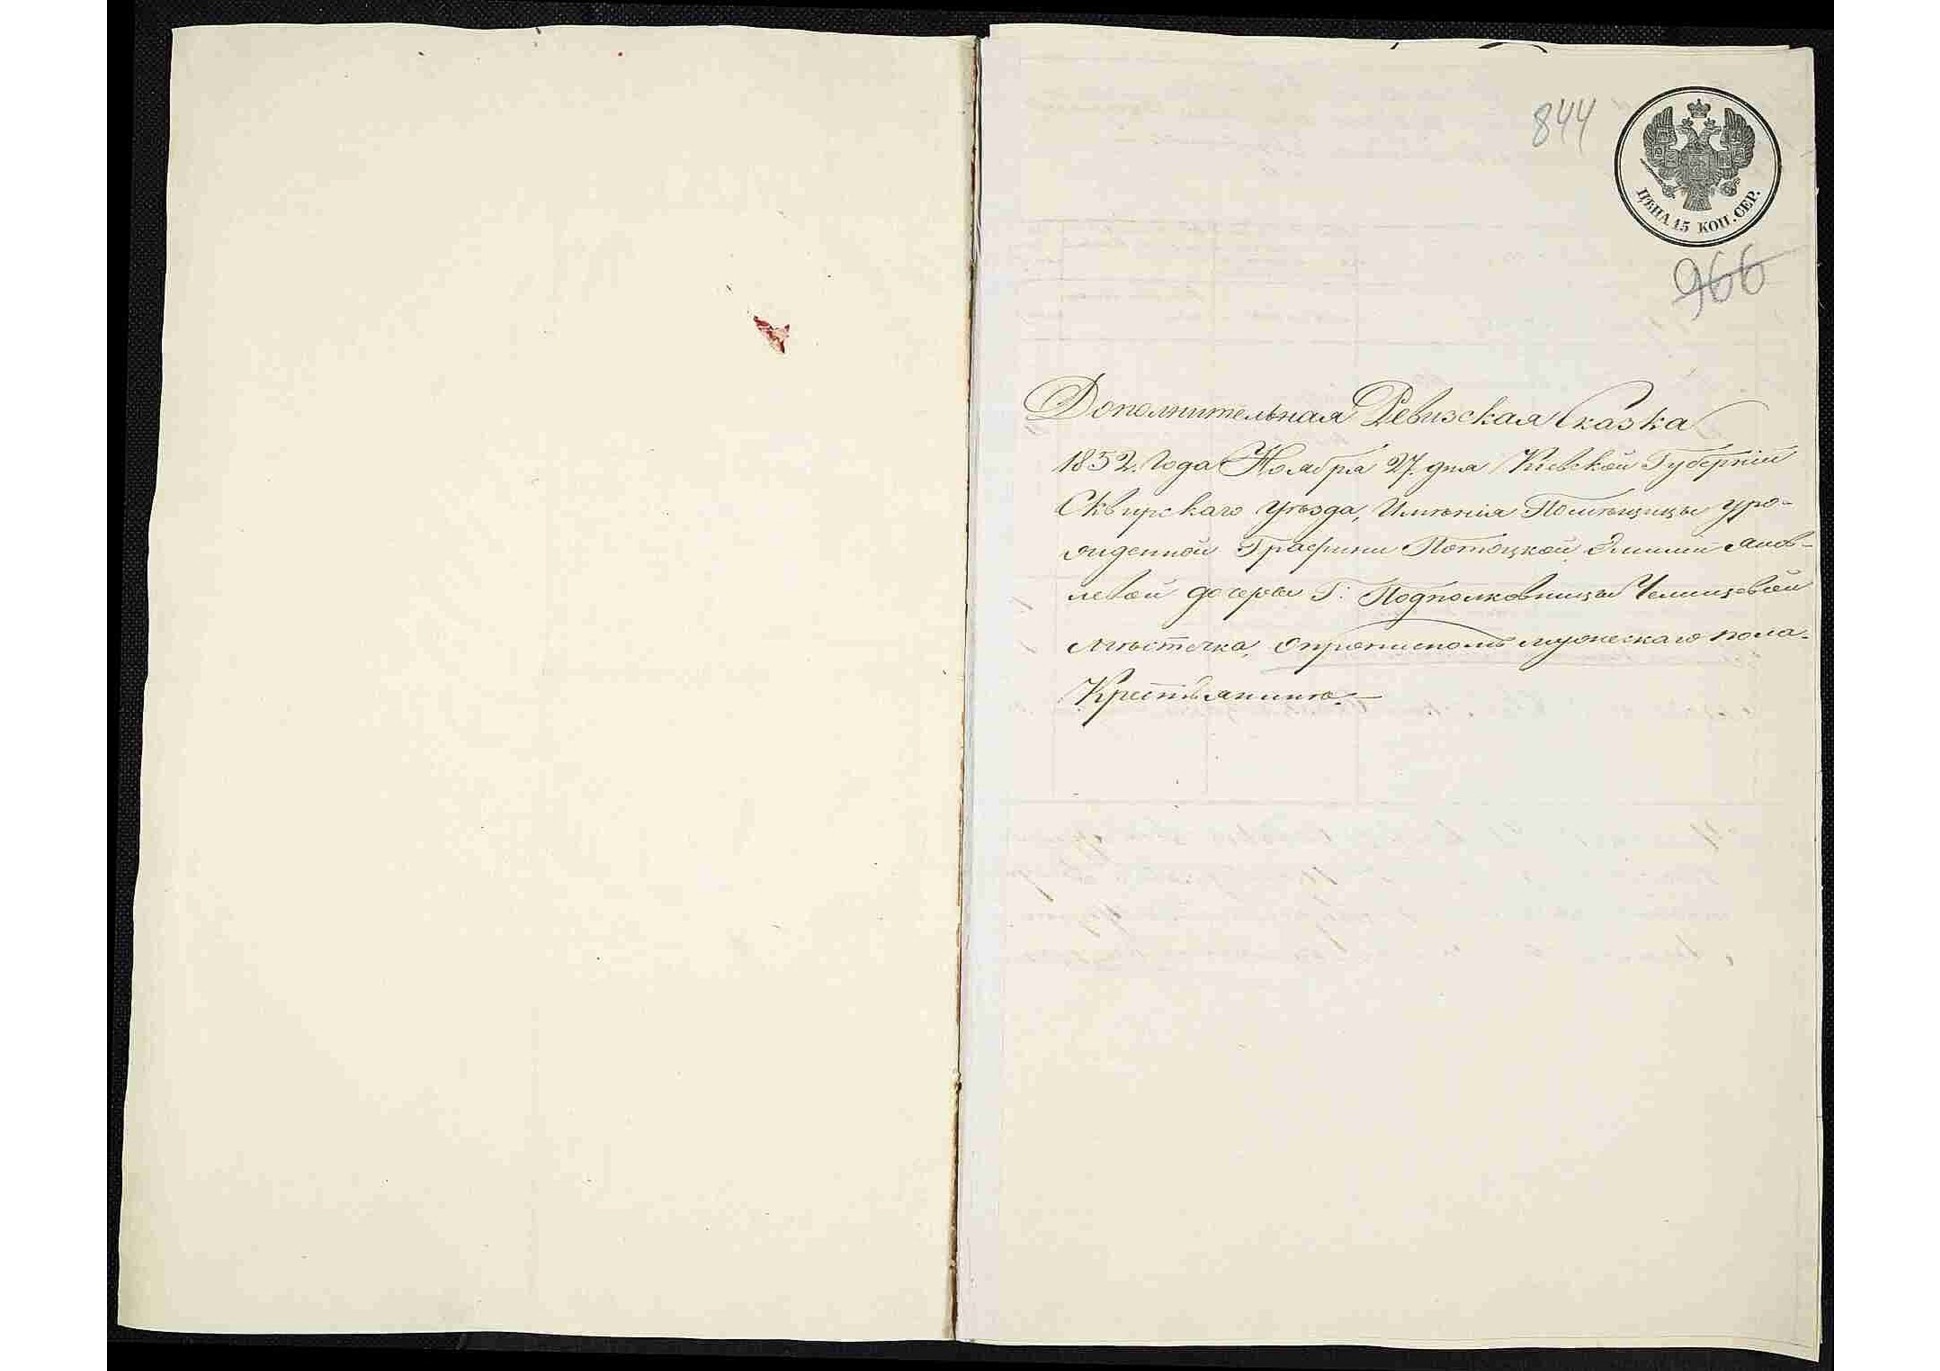 844
ЦѢНА 15 КОП. СЕР.
966
Дополнительная Ревизская Сказка
1852. Года Ноября 27. дня Кіевской Губерніи
Сквирскаго уѣзда, Имѣнія Помѣщицы уро-
жденной Графини Потоцкой Эмиліи
левой дочери Г: Подполковницы Челищевой
мѣстечка, опрописномъ мужескаго пола
Крестьянинѣ.—